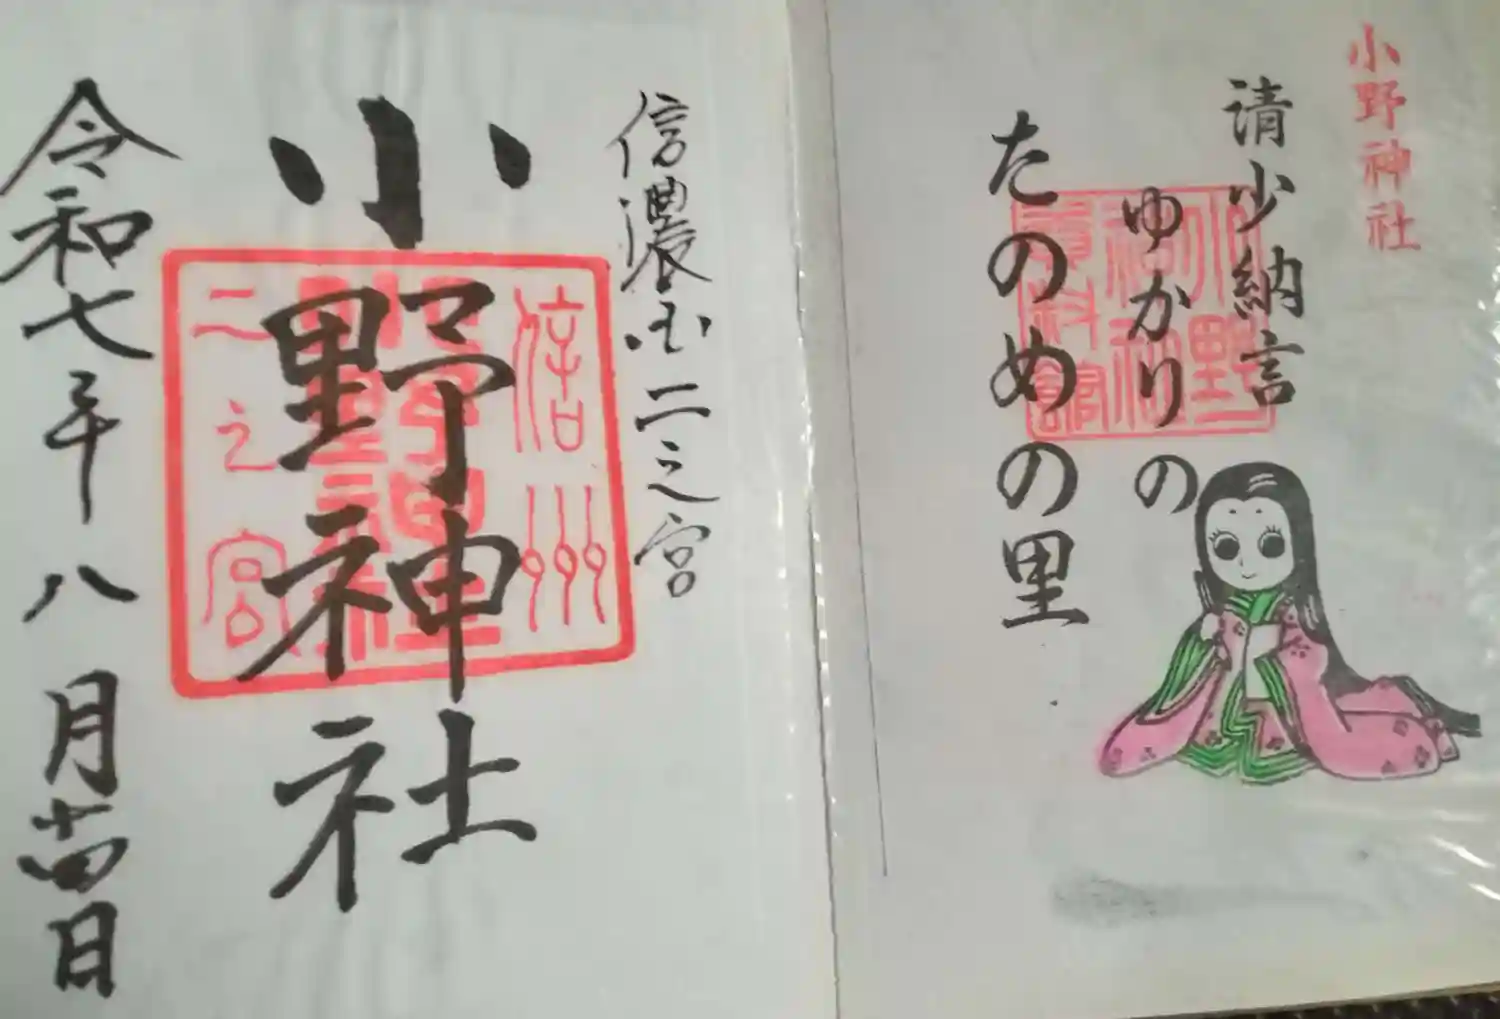 小野神社
請少納言
ゆかりの
たのめの里
小野神社
資料館
信濃国二之宮
小野神社
信州
二之宮
令和七年八月十四日